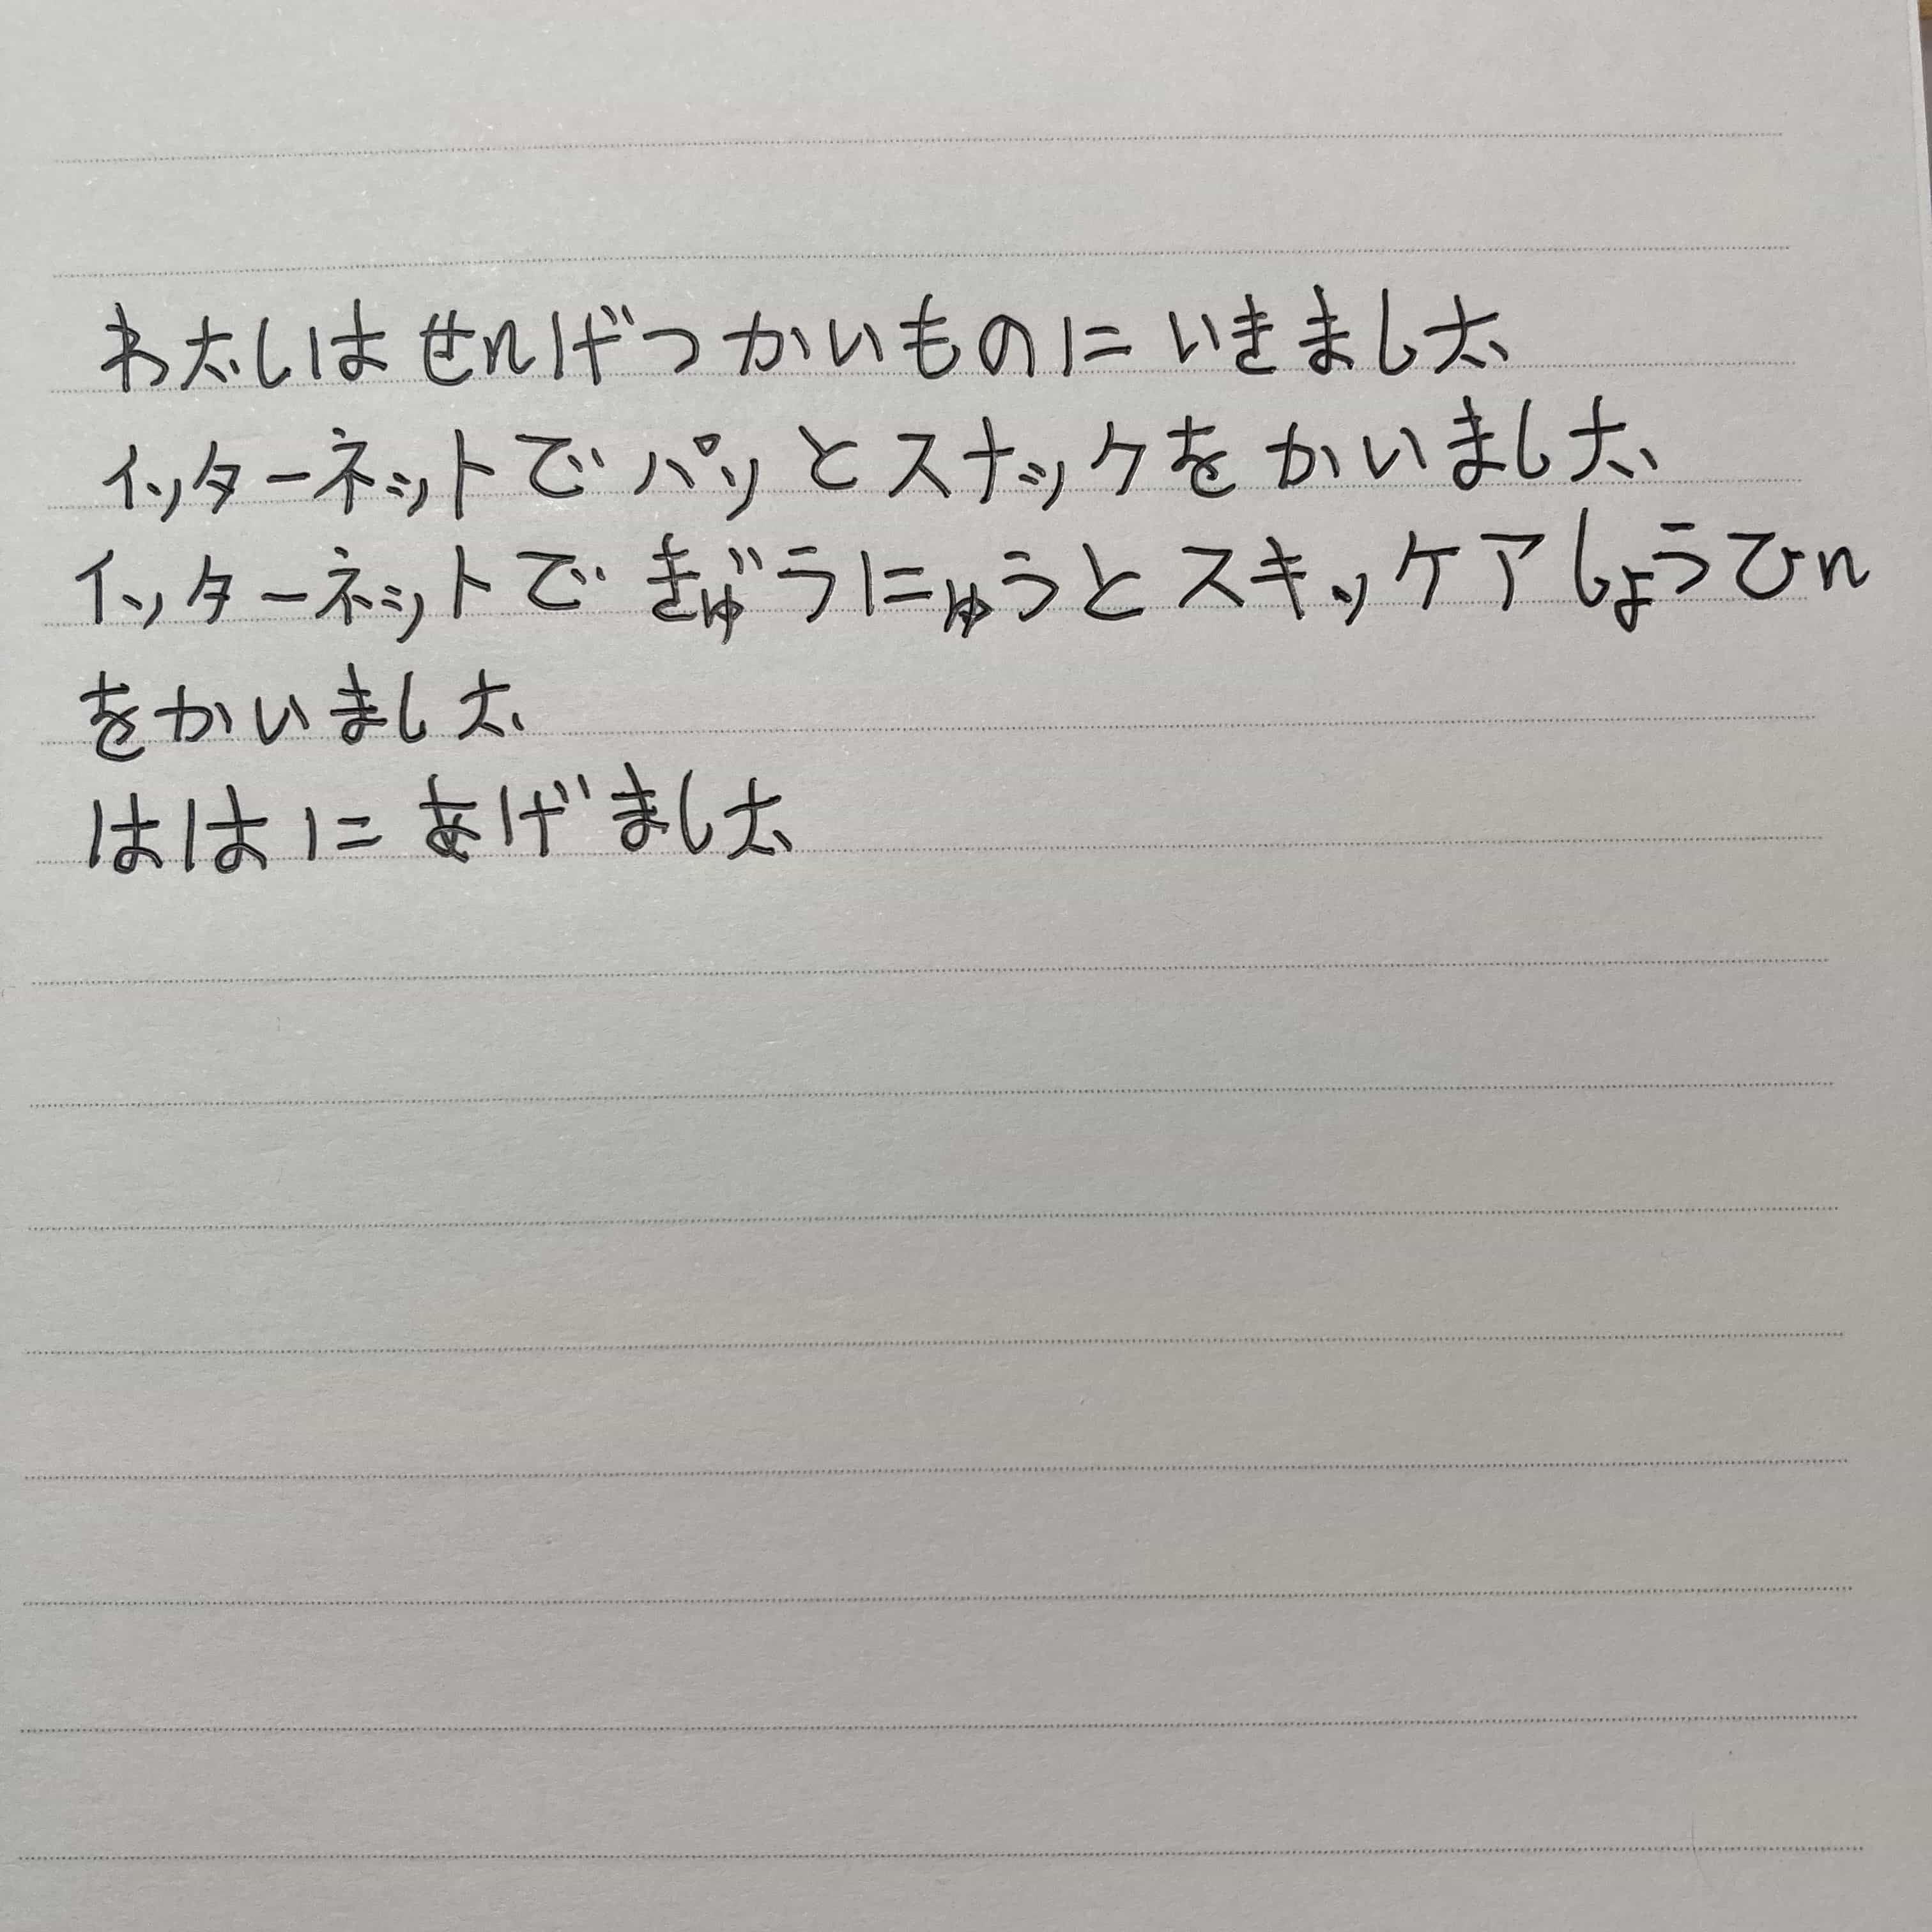 わたしはせんげつかいものにいきました
インターネットでパンとスナックをかいました
インターネットでぎゅうにゅうとスキンケアしょうひん
をかいました
ははにあげました